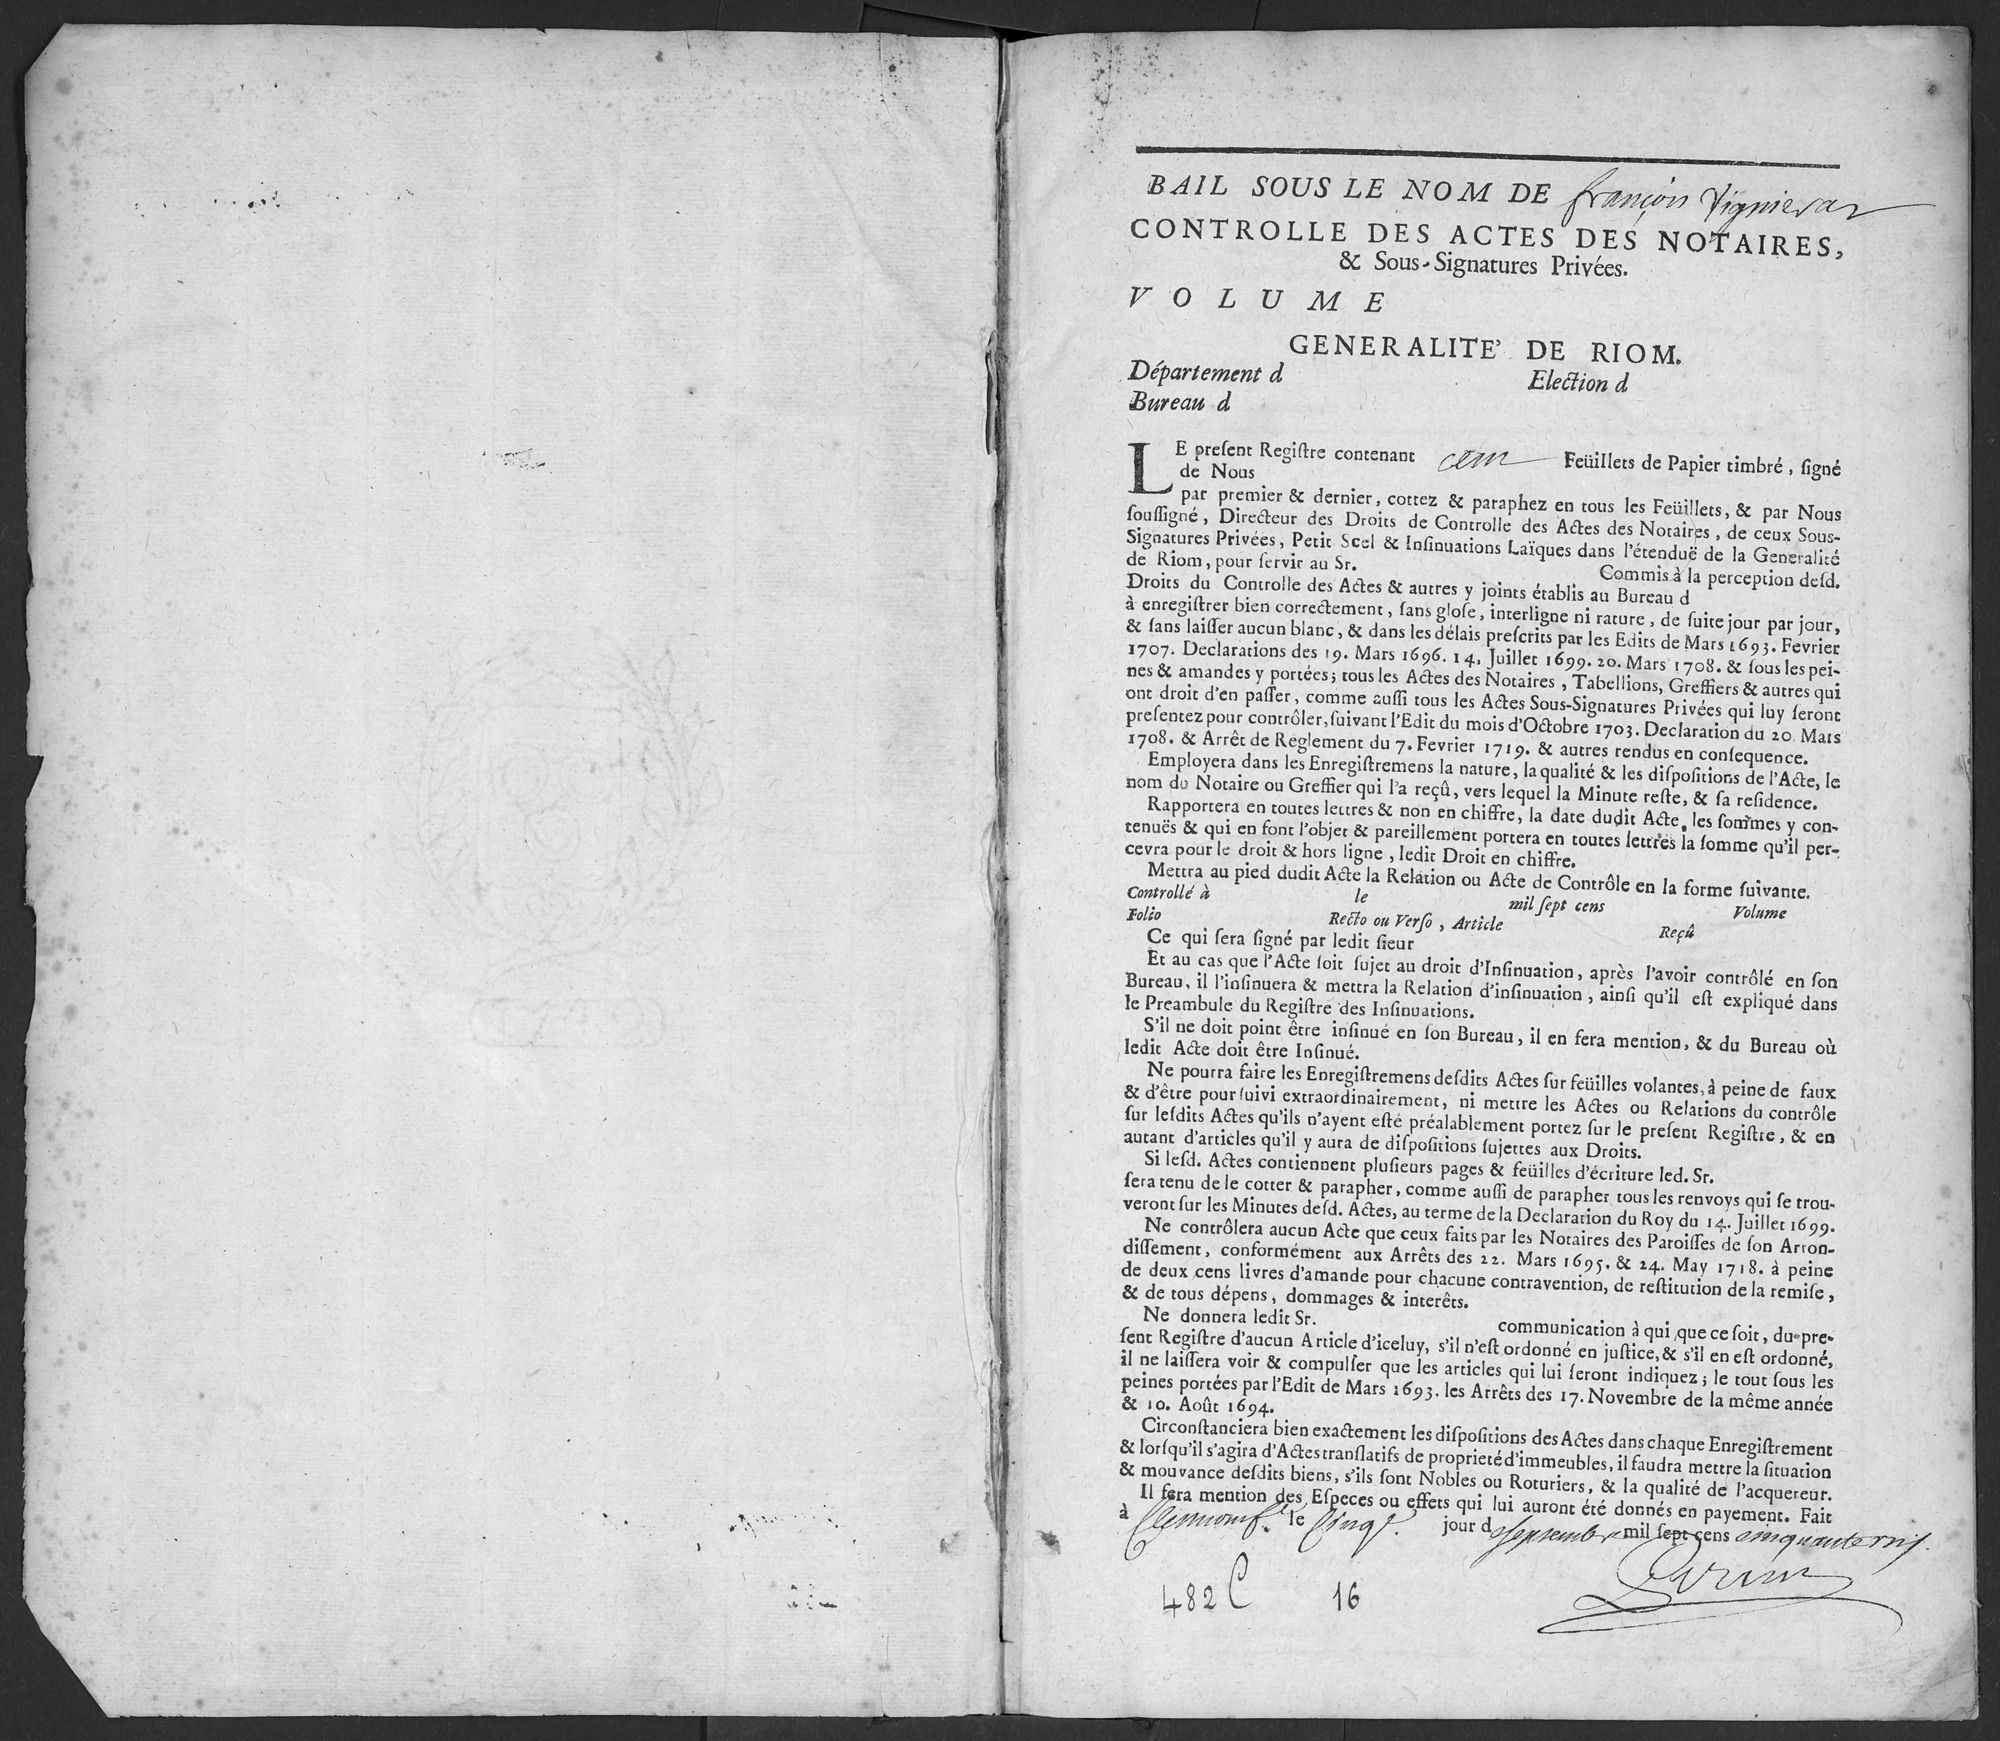 BAIL SOUS LE NOM DE françois
CONTROLLE DES ACTES DES NOTAIRES,
& Sous-Signatures Privées.
VOLUME
GENERALITE' DE RIOM.
Département d Election d
Bureau d
LE preſent Regiſtre contenant cent Feüillets de Papier timbré, ſigné
de Nous
par premier & dernier, cottez & paraphez en tous les Feüillets, & par Nous
ſouſſigné, Directeur des Droits de Controlle des Actes des Notaires, de ceux Sous-
Signatures Privées, Petit Scel & Inſinuations Laïques dans l'étenduë de la Generalité
de Riom, pour ſervir au Sr. Commis à la perception deſd.
Droits du Controlle des Actes & autres y joints établis au Bureau d
à enregiſtrer bien correctement, ſans gloſe, interligne ni rature, de ſuite jour par jour,
& ſans laiſſer aucun blanc, & dans les délais preſcrits par les Edits de Mars 1693. Fevrier
1707. Declarations des 19. Mars 1696. 14. Juillet 1699. 20. Mars 1708. & ſous les pei-
nes & amandes y portées; tous les Actes des Notaires, Tabellions, Greffiers & autres qui
ont droit d'en paſſer, comme auſſi tous les Actes Sous-Signatures Privées qui luy ſeront
preſentez pour contrôler, ſuivant l'Edit du mois d'Octobre 1703. Declaration du 20 Mars
1708. & Arrêt de Reglement du 7. Fevrier 1719. & autres rendus en conſequence.
Employera dans les Enregiſtremens la nature, la qualité & les diſpoſitions de l'Acte, le
nom du Notaire ou Greffier qui l'a reçû, vers lequel la Minute reſte, & ſa reſidence.
Rapportera en toutes lettres & non en chiffre, la date dudit Acte, les ſommes y con-
tenuës & qui en font l'objet & pareillement portera en toutes lettres la ſomme qu'il per-
cevra pour le droit & hors ligne, ledit Droit en chiffre.
Mettra au pied dudit Acte la Relation ou Acte de Contrôle en la forme ſuivante.
Controllé à le mil ſept cens Volume
Folio Recto ou Verſo, Article Reçû
Ce qui ſera ſigné par ledit ſieur
Et au cas que l'Acte ſoit ſujet au droit d'Inſinuation, après l'avoir contrôlé en ſon
Bureau, il l'inſinuera & mettra la Relation d'inſinuation, ainſi qu'il eſt expliqué dans
le Preambule du Regiſtre des Inſinuations.
S'il ne doit point être inſinué en ſon Bureau, il en fera mention, & du Bureau où
ledit Acte doit être Inſinué.
Ne pourra faire les Enregiſtremens deſdits Actes ſur feüilles volantes, à peine de faux
& d'être pourſuivi extraordinairement, ni mettre les Actes ou Relations du contrôle
ſur leſdits Actes qu'ils n'ayent eſté préalablement portez ſur le preſent Regiſtre, & en
autant d'articles qu'il y aura de diſpoſitions ſujettes aux Droits.
Si leſd. Actes contiennent pluſieurs pages & feüilles d'écriture led. Sr.
ſera tenu de le cotter & parapher, comme auſſi de parapher tous les renvoys qui ſe trou-
veront ſur les Minutes deſd. Actes, au terme de la Declaration du Roy du 14. Juillet 1699.
Ne contrôlera aucun Acte que ceux faits par les Notaires des Paroiſſes de ſon Arron-
diſſement, conformément aux Arrêts des 22. Mars 1695. & 24. May 1718. à peine
de deux cens livres d'amande pour chacune contravention, de reſtitution de la remiſe,
& de tous dépens, dommages & interêts.
Ne donnera ledit Sr. communication à qui que ce ſoit, du pre-
ſent Regiſtre d'aucun Article d'iceluy, s'il n'eſt ordonné en juſtice, & s'il en eſt ordonné,
il ne laiſſera voir & compulſer que les articles qui lui ſeront indiquez; le tout ſous les
peines portées par l'Edit de Mars 1693. les Arrêts des 17. Novembre de la même année
& 10. Août 1694.
Circonſtanciera bien exactement les diſpoſitions des Actes dans chaque Enregiſtrement
& lorſqu'il s'agira d'Actes tranſlatifs de proprieté d'immeubles, il faudra mettre la ſituation
& mouvance deſdits biens, s'ils ſont Nobles ou Roturiers, & la qualité de l'acquereur.
Il fera mention des Eſpeces ou effets qui lui auront été donnés en payement. Fait
à le Cinq jour d septembre mil ſept cens
482 C 16